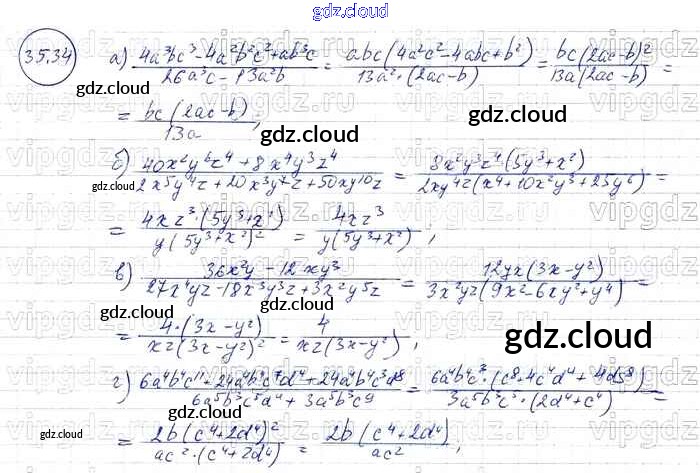 gdz.cloud
35.34 а) (4a³bc³ - 4a²b²c² + ab³c)/(26a³c - 13a²b) = abc(4a²c² - 4abc + b²)/(13a²·(2ac - b)) = bc(2ac - b)²/(13a(2ac - b)) =
= bc(2ac - b)/(13a);
gdz.cloud
б) (40x²y⁶z⁴ + 8x⁴y³z⁴)/(2x⁵y⁴z + 20x³y⁷z + 50xy¹⁰z) = 8x²y³z⁴·(5y³ + x²)/(2xy⁴z(x⁴ + 10x²y³ + 25y⁶)) =
gdz.cloud
= 4xz³·(5y³ + x²)/(y(5y³ + x²)²) = 4xz³/(y(5y³ + x²));
в) (36x²y - 12xy³)/(27x⁴yz - 18x³y³z + 3x²y⁵z) = 12yx(3x - y²)/(3x²yz(9x² - 6xy² + y⁴)) =
gdz.cloud
= 4·(3x - y²)/(xz(3x - y²)²) = 4/(xz(3x - y²));
gdz.cloud
г) (6a⁴b⁴c¹¹ + 24a⁴b⁴c⁷d⁴ + 24a⁴b⁴c³d⁸)/(6a⁵b³c⁵d⁴ + 3a⁵b³c⁹) = 6a⁴b⁴c³·(c⁸ + 4c⁴d⁴ + 4d⁸)/(3a⁵b³c⁵·(2d⁴ + c⁴)) =
gdz.cloud
gdz.cloud
= 2b(c⁴ + 2d⁴)²/(ac²·(c⁴ + 2d⁴)) = 2b(c⁴ + 2d⁴)/(ac²);
gdz.cloud
gdz.cloud